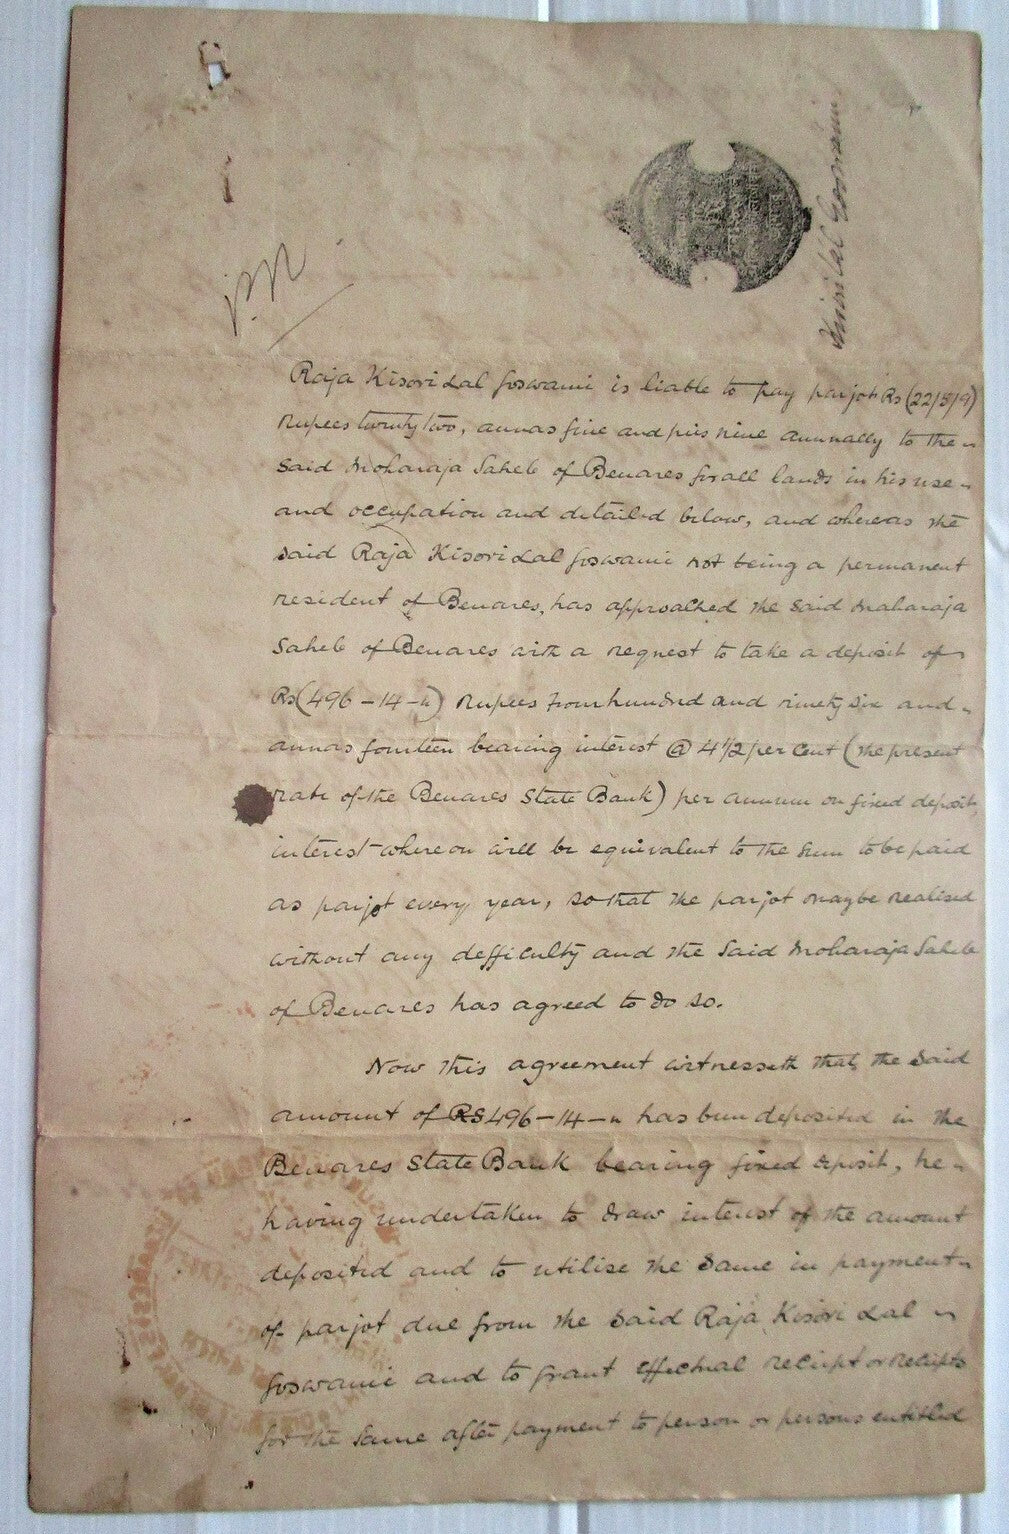 Kisori Lal Goswami
Raja Kisori Lal Goswami is liable to pay parjot Rs (22/5/9)
Rupees twenty two, annas five and pies nine annually to the
said Moharaja Saheb of Benares for all lands in his use
and occupation and detailed below, and whereas the
said Raja Kisori Lal Goswami not being a permanent
resident of Benares, has approached the said Maharaja
Saheb of Benares with a request to take a deposit of
Rs (496-14-) Rupees Four hundred and ninety six and
annas fourteen bearing interest @ 4½ per cent (the present
rate of the Benares State Bank) per annum on fixed deposit,
interest whereon will be equivalent to the sum to be paid
as parjot every year, so that the parjot may be realised
without any defficulty and the said Moharaja Saheb
of Benares has agreed to do so.
Now this agreement witnesseth that the said
amount of RS 496-14- has been deposited in the
Benares State Bank bearing fixed deposit, he
having undertaken to draw interest of the amount
deposited and to utilise the same in payment
of parjot due from the said Raja Kisori Lal
Goswami and to grant effectual receipt or receipts
for the same after payment to person or persons entitled